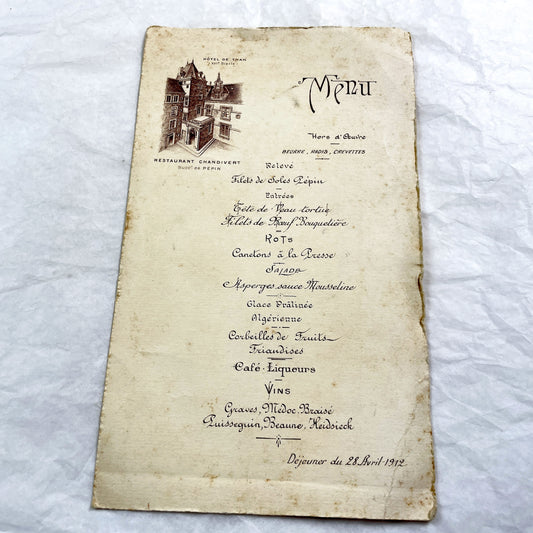 HÔTEL DE THAN
XVIe Siècle
RESTAURANT CHANDIVERT
Succr de PÉPIN
Menu
Hors d'Œuvre
BEURRE, RADIS, CREVETTES
Relevé
Filets de Soles Pépin
Entrées
Tête de Veau tortue
Filets de Bœuf Bouquetière
ROTS
Canetons à la Presse
SALADE
Asperges sauce Mousseline
Glace Prâlinée
Algérienne
Corbeilles de Fruits
Friandises
Café-Liqueurs
VINS
Graves, Médoc Braisé
Puisseguin, Beaune, Heidsieck
Déjeuner du 28 Avril 1912